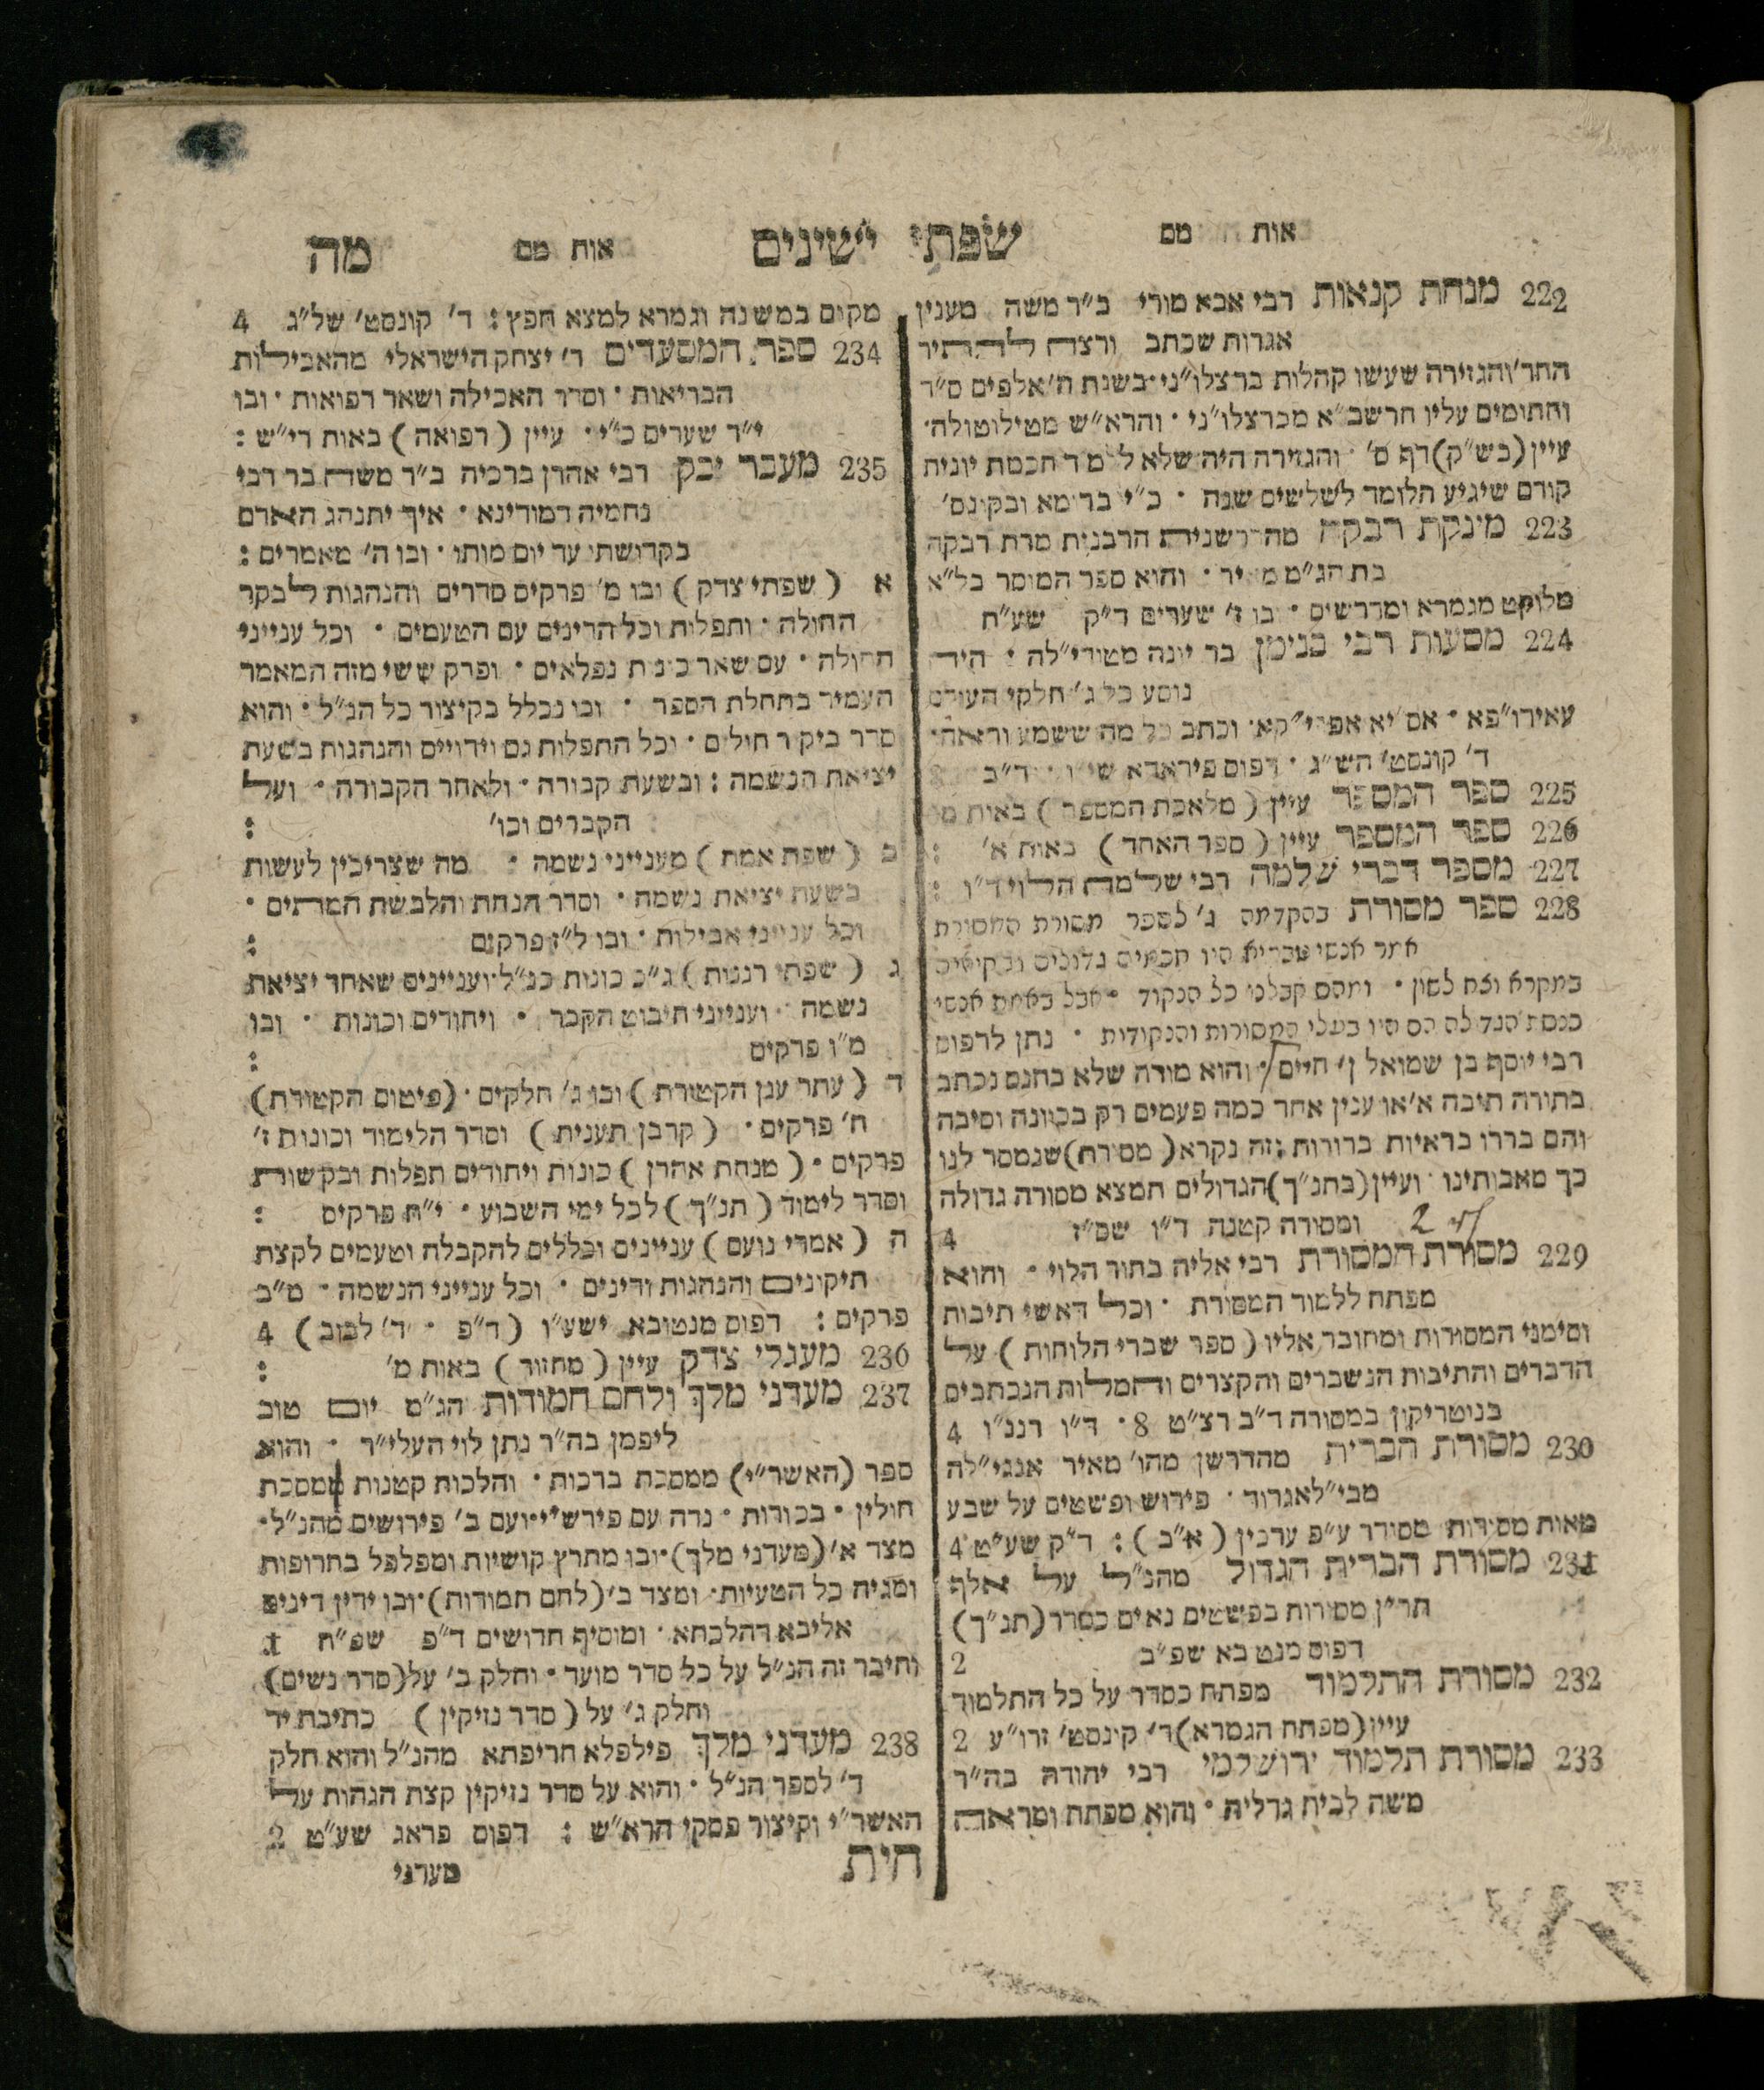 אות מם
שפתי ישינים
אות מם
מה
222 מנחת קנאות רבי אבא מורי ב״ר משה מענין
אגרות שכתב ורצה להתיר
החר׳ והגזירה שעשו קהלות ברצלו״ני בשנת ה׳ אלפים ס״ד
וחתומים עליו הרשב״א מברצלו״ני · והרא״ש מטילוטולה·
עיין (בש״ק) דף ס׳ · והגזירה היה שלא ללמד חכמת יונית
קודם שיגיע הלומד לשלשים שנה · כ״י ברומא ובקונס׳
223 מינקת רבקה מהדרשנית הרבנית מרת רבקה
בת הג״מ מאיר · והוא ספר המוסר בל״א
מלוקט מגמרא ומדרשים · ובו ז׳ שערים ד״ק שע״ח
224 מסעות רבי בנימן בר יונה מטודי״לה · היה
נוסע כל ג׳ חלקי העולם
עאירו״פא · אס״יא אפרי״קא· וכתב כל מה ששמע וראה·
ד׳ קונסט׳ הש״ג · דפוס פיראדא ד״ב 8
225 ספר המספר עיין (מלאכת המספר) באות מ׳
226 ספר המספר עיין (ספר האחד) באות א׳ :
227 מספר דברי שלמה רבי שלמה הלוי ד״ו :
228 ספר מסורת בהקדמה ג׳ לספר מסורת המסורת
אמר אנשי טבריא היו חכמים גדולים ובקיאים
במקרא וצח לשון · ומהם קבלנו כל הנקוד · אבל באמת אנשי
כנסת הגדולה הם היו בעלי המסורות והנקודות · נתן לדפוס
רבי יוסף בן שמואל ן׳ חיים · והוא מורה שלא בחנם נכתב
בתורה תיבה א׳ או ענין אחר כמה פעמים רק בכוונה וסיבה
והם בררו בראיות ברורות : וזה נקרא (מסורת) שנמסר לנו
כך מאבותינו · ועיין (בתנ״ך) הגדולים תמצא מסורה גדולה
ומסורה קטנה ד״ו שס״ז 4
229 מסורת המסורת רבי אליה בחור הלוי · והוא
מפתח ללמוד המסורת · וכל ראשי תיבות
וסימני המסורות ומחובר אליו (ספר שברי הלוחות) על
הדברים והתיבות הנשברים והקצרים והמלות הנכתבים
בנוטריקון במסורה ד״ב רצ״ט 8 · ד״ו רננ״ו 4
230 מסורת הברית מהדרשן מהו׳ מאיר אנגי״לה
מבי״לאגרוד · פירוש ופשטים על שבע
מאות מסורות מסודר ע״פ ערכין (א״ב) : ד״ק שע״ט 4
231 מסורת הברית הגדול מהנ״ל על אלף
תר״ן מסורות בפשטים נאים כסדר (תנ״ך)
דפוס מנטובא שפ״ב 2
232 מסורת התלמוד מפתח כסדר על כל התלמוד
עיין (מפתח הגמרא) ד׳ קונסט׳ זרו״ע 2
233 מסורת תלמוד ירושלמי רבי יהודה בה״ר
משה לבית גדליה · והוא מפתח ומראה
מקום במשנה וגמרא למצא חפץ : ד׳ קונסט׳ של״ג 4
234 ספר המסעדים ר׳ יצחק הישראלי מהאכילות
הבריאות · וסדר האכילה ושאר רפואות · ובו
י״ד שערים כ״י · עיין (רפואה) באות רי״ש :
235 מעבר יבק רבי אהרן ברכיה ב״ר משה בר רבי
נחמיה דמודינא · איך יתנהג האדם
בקדושתו עד יום מותו · ובו ה׳ מאמרים :
א (שפתי צדק) ובו מ׳ פרקים סדרים והנהגות לבקר
החולה · ותפלות וכל הדינים עם הטעמים · וכל ענייני
החולה · עם שאר כונות נפלאים · ופרק ששי מזה המאמר
העמיד בתחלת הספר · ובו נכלל בקיצור כל הנ״ל · והוא
סדר ביקור חולים · וכל התפלות גם וידויים והנהגות בשעת
יציאת הנשמה : ובשעת קבורה · ולאחר הקבורה · ועל
הקברים וכו׳ :
ב (שפת אמת) מענייני נשמה · מה שצריכין לעשות
בשעת יציאת נשמה · וסדר הנחת והלבשת המתים ·
וכל ענייני אבילות · ובו ל״ז פרקים :
ג (שפתי רננות) ג״כ כונות כנ״ל· ועניינים שאחר יציאת
נשמה · וענייני חיבוט הקבר · ויחודים וכונות · ובו
מ״ו פרקים :
ד (עתר ענן הקטורת) ובו ג׳ חלקים · (פיטום הקטורת)
ח׳ פרקים · (קרבן תענית) וסדר הלימוד וכונות ז׳
פרקים · (מנחת אהרן) כונות ויחודים תפלות ובקשות
וסדר לימוד (תנ״ך) לכל ימי השבוע · י״ח פרקים :
ה (אמרי נועם) עניינים וכללים להקבלה וטעמים לקצת
תיקונים והנהגות ודינים · וכל ענייני הנשמה · מ״ב
פרקים : דפוס מנטובא ישע״ו (ד״פ · ד׳ לבוב) 4
236 מעגלי צדק עיין (מחזור) באות מ׳ :
237 מעדני מלך ולחם חמודות הג״מ יום טוב
ליפמן בה״ר נתן לוי העלי״ר · והוא
ספר (האשר״י) ממסכת ברכות · והלכות קטנות וממסכת
חולין · בכורות · נדה עם פירש״י· ועם ב׳ פירושים מהנ״ל·
מצד א׳ (מעדני מלך)· ובו מתרץ קושיות ומפלפל בחריפות
ומגיה כל הטעיות· ומצד ב׳ (לחם חמודות)· ובו ידין דינים
אליבא דהלכתא · ומוסיף חדושים ד״פ שפ״ח 1
וחיבר זה הנ״ל על כל סדר מועד · וחלק ב׳ על (סדר נשים)
וחלק ג׳ על (סדר נזיקין) כתיבת יד
238 מעדני מלך פילפלא חריפתא מהנ״ל והוא חלק
ד׳ לספר הנ״ל · והוא על סדר נזיקין קצת הגהות על
האשר״י וקיצור פסקי הרא״ש : דפוס פראג שע״ט 2
חית
מעדני